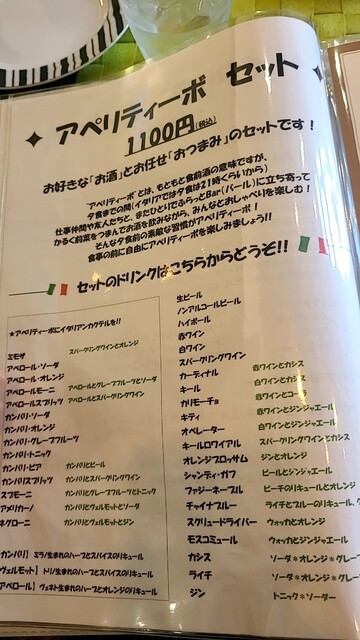 アペリティーボ セット
1100円(税込)
お好きな「お酒」とお任せ「おつまみ」のセットです！
'アペリティーボ'とは、もともと食前酒の意味ですが、
夕食までの間(イタリアでは夕食は21時くらいから)
仕事仲間や友人たちと、またひとりでふらっとBar(バール)に立ち寄って
かるく前菜をつまんでお酒を飲みながら、みんなとおしゃべりを楽しむ！
そんな夕食前の素敵な習慣がアペリティーボ！
食事の前に自由にアペリティーボを楽しみましょう!!
セットのドリンクはこちらからどうぞ!!
★アペリティーボにイタリアンカクテルを!!
ミモザ スパークリングワインとオレンジ
アペロール・ソーダ
アペロール・オレンジ
アペロールモーニ アペロールとグレープフルーツとソーダ
アペロールスプリッツ アペロールとスパークリングワイン
カンパリ・ソーダ
カンパリ・オレンジ
カンパリ・グレープフルーツ
カンパリ・トニック
カンパリ・ビア カンパリとビール
カンパリスプリッツ カンパリとスパークリングワイン
スプモーニ カンパリとグレープフルーツとトニック
アメリカーノ カンパリとヴェルモットとソーダ
ネグローニ カンパリとヴェルモットとジン
カンパリ】ミラノ生まれのハーブとスパイスのリキュール
ヴェルモット】トリノ生まれのハーブとスパイスのリキュール
アペロール】ヴェネト生まれのハーブとオレンジのリキュール
生ビール
ノンアルコールビール
ハイボール
赤ワイン
白ワイン
スパークリングワイン
カーディナル 赤ワインとカシス
キール 白ワインとカシス
カリモーチョ 赤ワインとコーラ
キティ 赤ワインとジンジャエール
オペレーター 白ワインとジンジャエール
キールロワイアル スパークリングワインとカシス
オレンジブロッサム ジンとオレンジ
シャンディ・ガフ ビールとジンジャエール
ファジーネーブル ピーチのリキュールとオレンジ
チャイナブルー ライチとブルーのリキュール、グ
スクリュードライバー ウォッカとオレンジ
モスコミュール ウォッカとジンジャエール
カシス ソーダ＊オレンジ＊グレー
ライチ ソーダ＊オレンジ＊グレー
ジン トニック＊ソーダー